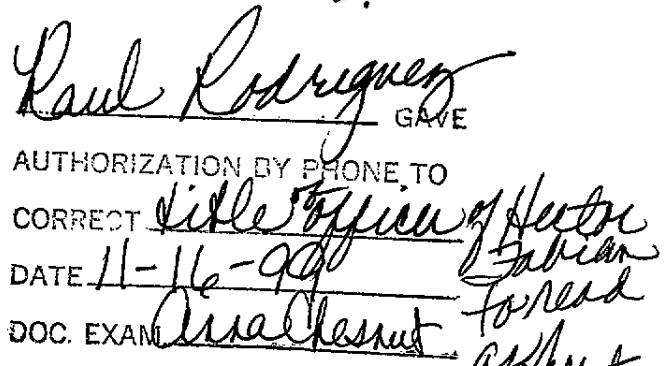 Raul Rodriguez GAVE
AUTHORIZATION BY PHONE TO
CORRECT title of officer of Hector
Fabian
DATE 11-16-99
to read
DOC. EXAM Anna Chesnut